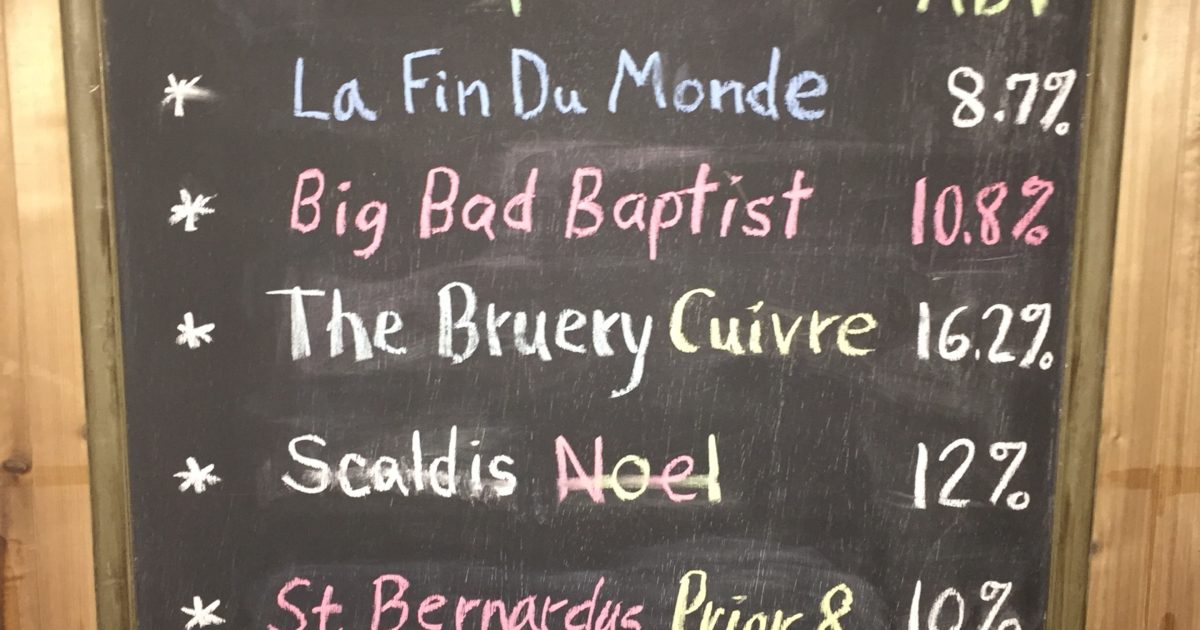 ABV
* La Fin Du Monde 8.7%
* Big Bad Baptist 10.8%
* The Bruery Cuivre 16.2%
* Scaldis Noel 12%
* St Bernardus Prior 8 10%